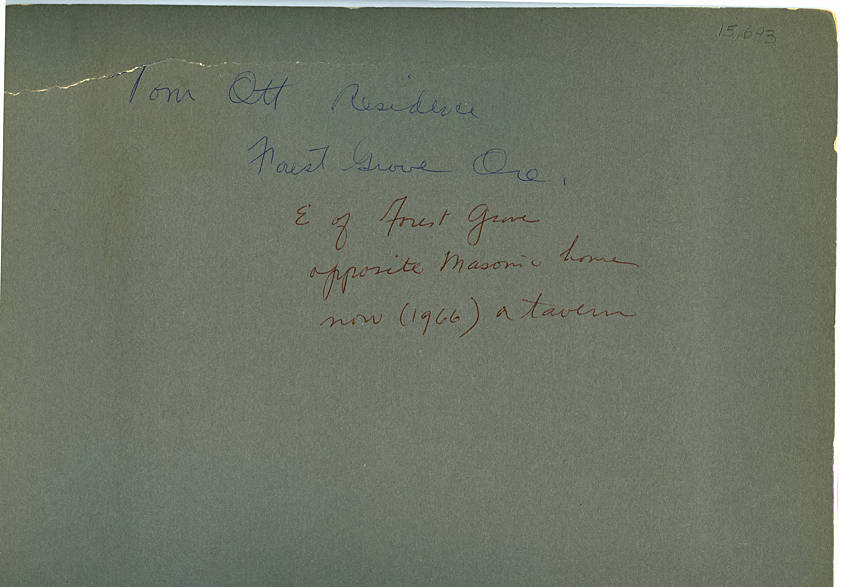 15,693
Tom Ott Residence
Forest Grove Ore.
E of Forest Grove
opposite Masonic home
now (1966) a tavern